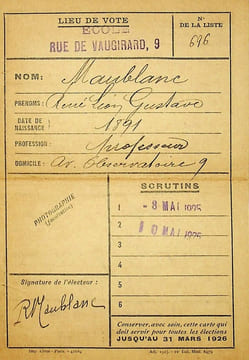 LIEU DE VOTE
N°
DE LA LISTE
ECOLE
RUE DE VAUGIRARD, 9
696
NOM: Maublanc
PRÉNOMS: René Léon Gustave
DATE DE
NAISSANCE: 1891
PROFESSION: Professeur
DOMICILE: Av. Observatoire 9
SCRUTINS
PHOTOGRAPHIE
(facultative)
1 - 3 MAI 1925
2 10 MAI 1925
3
4
5
6
Signature de l'électeur:
R Maublanc
Conserver, avec soin, cette carte qui
doit servir pour toutes les élections
JUSQU'AU 31 MARS 1926